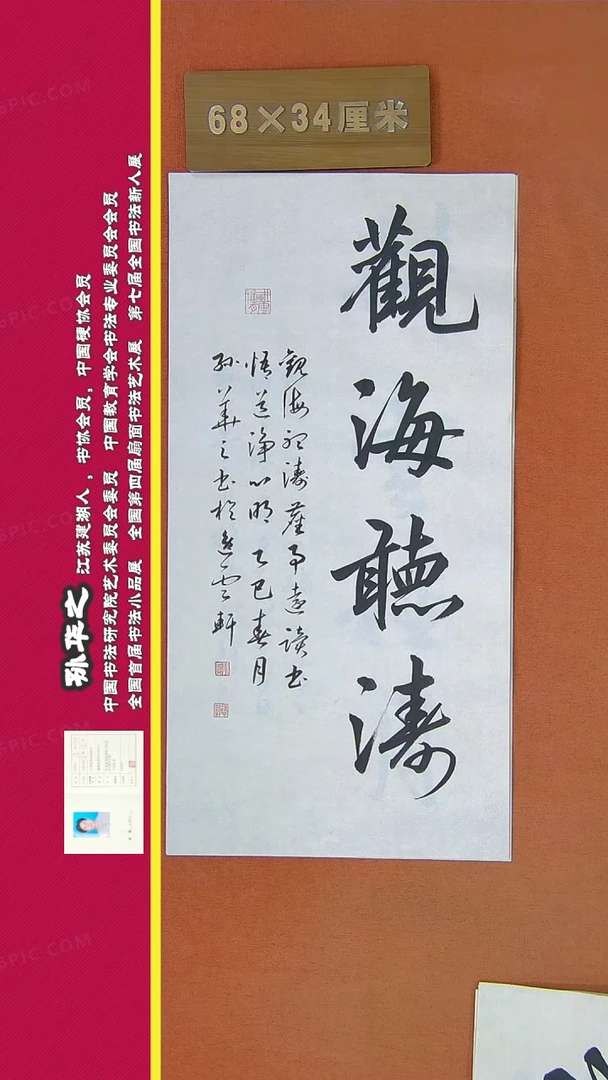 68×34厘米
觀海聽濤
觀海聽濤塵事遠讀書
悟道淨心明乙巳春月
孙華之书於逸雲軒
孙华之 江苏建湖人，书协会员，中国硬协会员
中国书法研究院艺术委员会委员 中国教育学会书法专业委员会会员
全国首届书法小品展 全国第四届扇面书法艺术展 第七届全国书法新人展